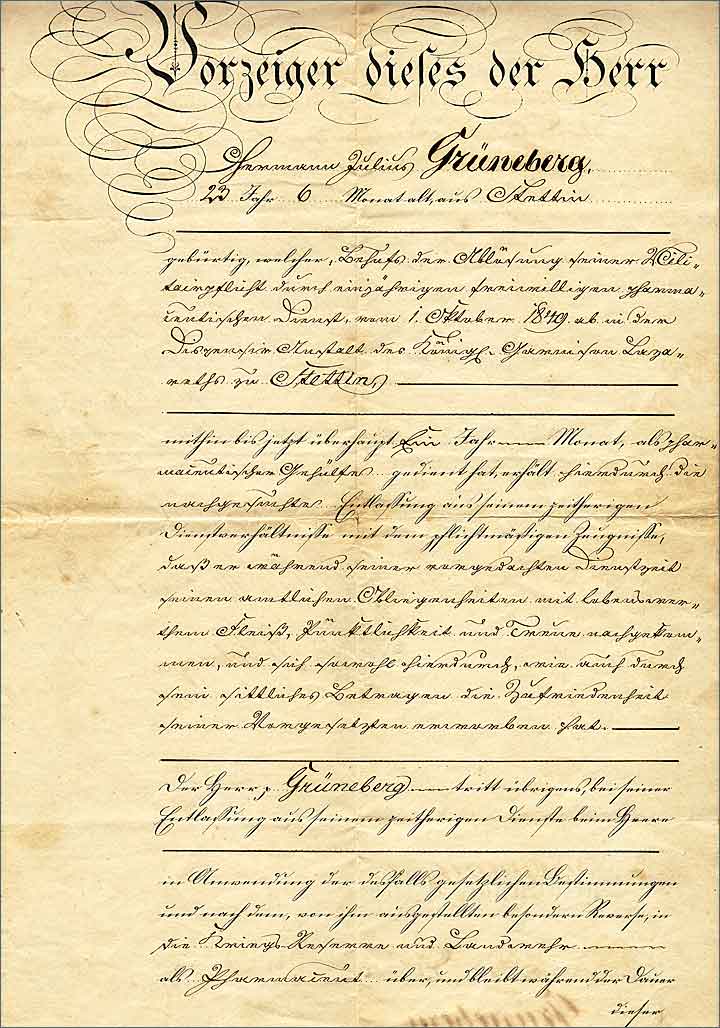 Vorzeiger dieses der Herr
Hermann Julius Grüneberg,
23 Jahr 6 Monat alt, aus Stettin
gebürtig, welcher, Behufs der Ablösung seiner Mili-
tairpflicht durch einjährigen freiwilligen pharma-
ceutischen Dienst, vom 1. Oktober 1849 ab in der
Dispensir Anstalt des Königl. Garnison Laza-
reths zu Stettin,
mithin bis jetzt überhaupt Ein Jahr Monat, als phar-
maceutischer Gehülfe gedient hat, erhält hierdurch die
nachgesuchte Entlassung aus seinem zeitherigen
Dienstverhältnisse mit dem pflichtmäßigen Zeugnisse,
daß er während seiner vorgedachten Dienstzeit
seinen amtlichen Obliegenheiten mit lobenswer-
them Fleiß, Pünktlichkeit und Treue nachgekom-
men, und sich sowohl hierdurch, wie auch durch
sein sittliches Betragen die Zufriedenheit
seiner Vorgesetzten erworben hat.
Der Herr p. Grüneberg tritt übrigens, bei seiner
Entlassung aus seinem zeitherigen Dienste beim Heere
in Anwendung der desfalls gesetzlichen Bestimmungen
und nach dem, von ihm ausgestellten besondern Reverse, in
die Kriegs-Reserve und Landwehr
als Pharmaceut über, und bleibt während der Dauer
dieser